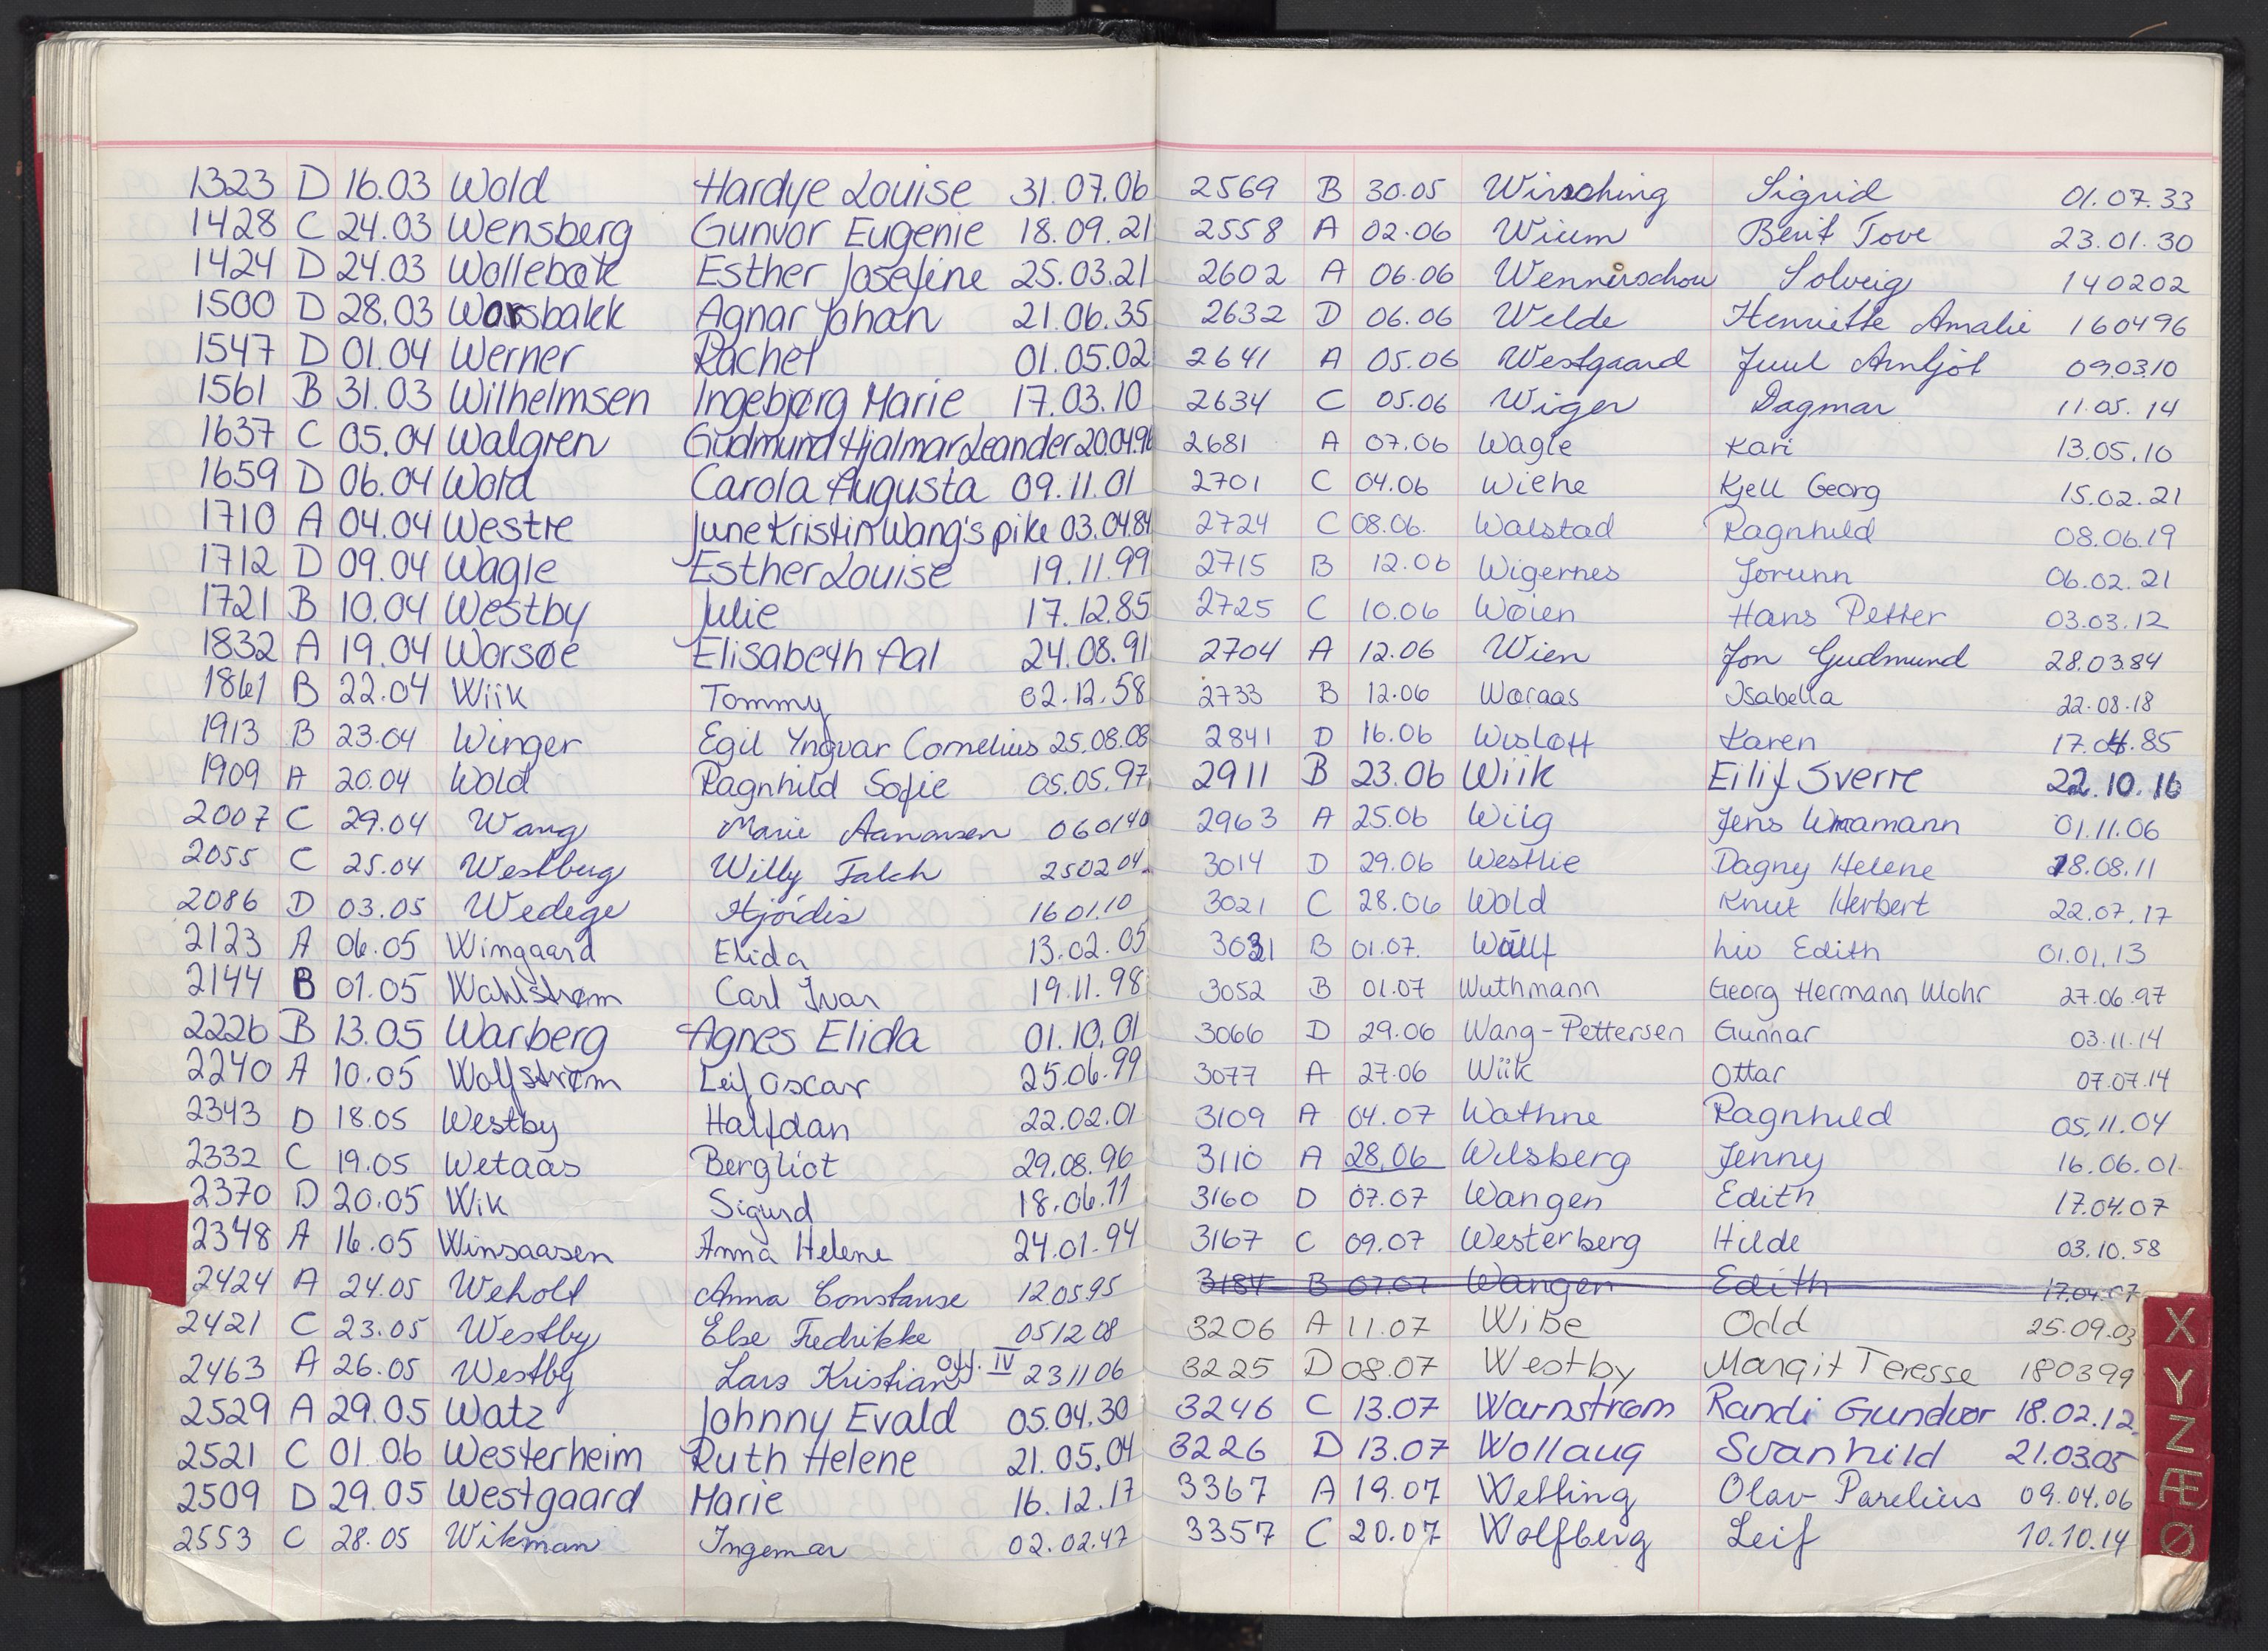 1323 D 16.03 Wold Hardye Louise 31.07.06
1428 C 24.03 Wensberg Gunvor Eugenie 18.09.21
1424 D 24.03 Wollebæk Esther Josefine 25.03.21
1500 D 28.03 Worsbakk Agnar Johan 21.06.35
1547 D 01.04 Werner Rachel 01.05.02
1561 B 31.03 Wilhelmsen Ingebjørg Marie 17.03.10
1637 C 05.04 Walgren Gudmund Hjalmar Leander 20.04.96
1659 D 06.04 Wold Carola Augusta 09.11.01
1710 A 04.04 Westre June Kristin Wang's pike 03.04.84
1712 D 09.04 Wagle Esther Louise 19.11.99
1721 B 10.04 Westby Julie 17.12.85
1832 A 19.04 Worsøe Elisabeth Aal 24.08.91
1861 B 22.04 Wiik Tommy 02.12.58
1913 B 23.04 Winger Egil Yngvar Cornelius 25.08.08
1909 A 20.04 Wold Ragnhild Sofie 05.05.97
2007 C 29.04 Wang Marie Aanonsen 060140
2055 C 25.04 Westberg Willy Falch 250204
2086 D 03.05 Wedege Hjørdis 16.01.10
2123 A 06.05 Wimgaard Elida 13.02.05
2144 B 01.05 Wahlstrøm Carl Ivar 19.11.98
2226 B 13.05 Warberg Agnes Elida 01.10.01
2240 A 10.05 Wolfstrøm Leif Oscar 25.06.99
2343 D 18.05 Westby Halfdan 22.02.01
2332 C 19.05 Wetaas Bergliot 29.08.96
2370 D 20.05 Wik Sigurd 18.06.11
2348 A 16.05 Winsaasen Anna Helene 24.01.94
2424 A 24.05 Weholt Anna Constanse 12.05.95
2421 C 23.05 Westby Else Fredrikke 051208
2463 A 26.05 Westby Lars Kristian avd. IV 231106
2529 A 29.05 Watz Johnny Evald 05.04.30
2521 C 01.06 Westerheim Ruth Helene 21.05.04
2509 D 29.05 Westgaard Marie 16.12.17
2553 C 28.05 Wikman Ingemar 02.02.47
2569 B 30.05 Wirsching Sigrid 01.07.33
2558 A 02.06 Wium Berit Tove 23.01.30
2602 A 06.06 Wennerschou Solveig 140202
2632 D 06.06 Welde Henriette Amalie 160496
2641 A 05.06 Westgaard Juul Arnljot 09.03.10
2634 C 05.06 Wiger Dagmar 11.05.14
2681 A 07.06 Wagle Kari 13.05.10
2701 C 04.06 Wiehe Kjell Georg 15.02.21
2724 C 08.06. Walstad Ragnhild 08.06.19
2715 B 12.06 Wigernes Jorunn 06.02.21
2725 C 10.06 Wøien Hans Petter 03.03.12
2704 A 12.06 Wien Jon Gudmund 28.03.84
2733 B 12.06 Woraas Isabella 22.08.18
2841 D 16.06 Wisløff Karen 17.04.85
2911 B 23.06 Wiik Eilif Sverre 22.10.16
2963 A 25.06 Wiig Jens Wraamann 01.11.06
3014 D 29.06 Westlie Dagny Helene 18.08.11
3021 C 28.06 Wold Knut Herbert 22.07.17
3031 B 01.07. Wulf Liv Edith 01.01.13
3052 B 01.07 Wuthmann Georg Hermann Mohr 27.06.97
3066 D 29.06 Wang-Pettersen Gunnar 03.11.14
3077 A 27.06 Wiik Ottar 07.07.14
3109 A 04.07 Wathne Ragnhild 05.11.04
3110 A 28.06 Wilsberg Jenny 16.06.01
3160 D 07.07 Wangen Edith 17.04.07
3167 C 09.07 Westerberg Hilde 03.10.58
3184 B 07.07 Wangen Edith 17.04.07
3206 A 11.07 Wibe Odd 25.09.03
3225 D 08.07 Westby Margit Teresse 180399
3246 C 13.07 Warnstrøm Randi Gundvor 18.02.12
3226 D 13.07 Wollaug Svanhild 21.03.05
3367 A 19.07 Wetling Olav Parelius 09.04.06
3357 C 20.07 Wolfberg Leif 10.10.14
X
Y
Z
Æ
Ø